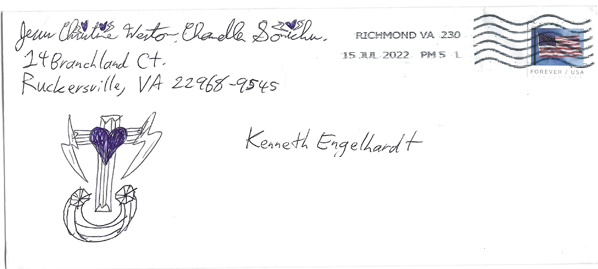 Christine
14 Branchland Ct.
Ruckersville, VA 22968-9545
RICHMOND VA 230
15 JUL 2022 PM 5 L
FOREVER / USA
Kenneth Engelhardt